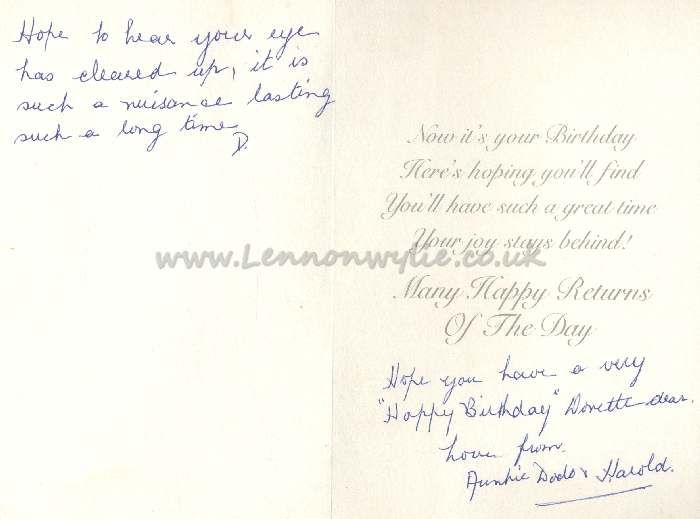 Hope to hear your eye
has cleared up, it is
such a nuisance lasting
such a long time
D.
Now it's your Birthday
Here's hoping you'll find
You'll have such a great time
Your joy stays behind!
www.Lennonwylie.co.uk
Many Happy Returns
Of The Day
Hope you have a very
"Happy Birthday" Dorette dear.
Love from.
Auntie Dodo & Harold.